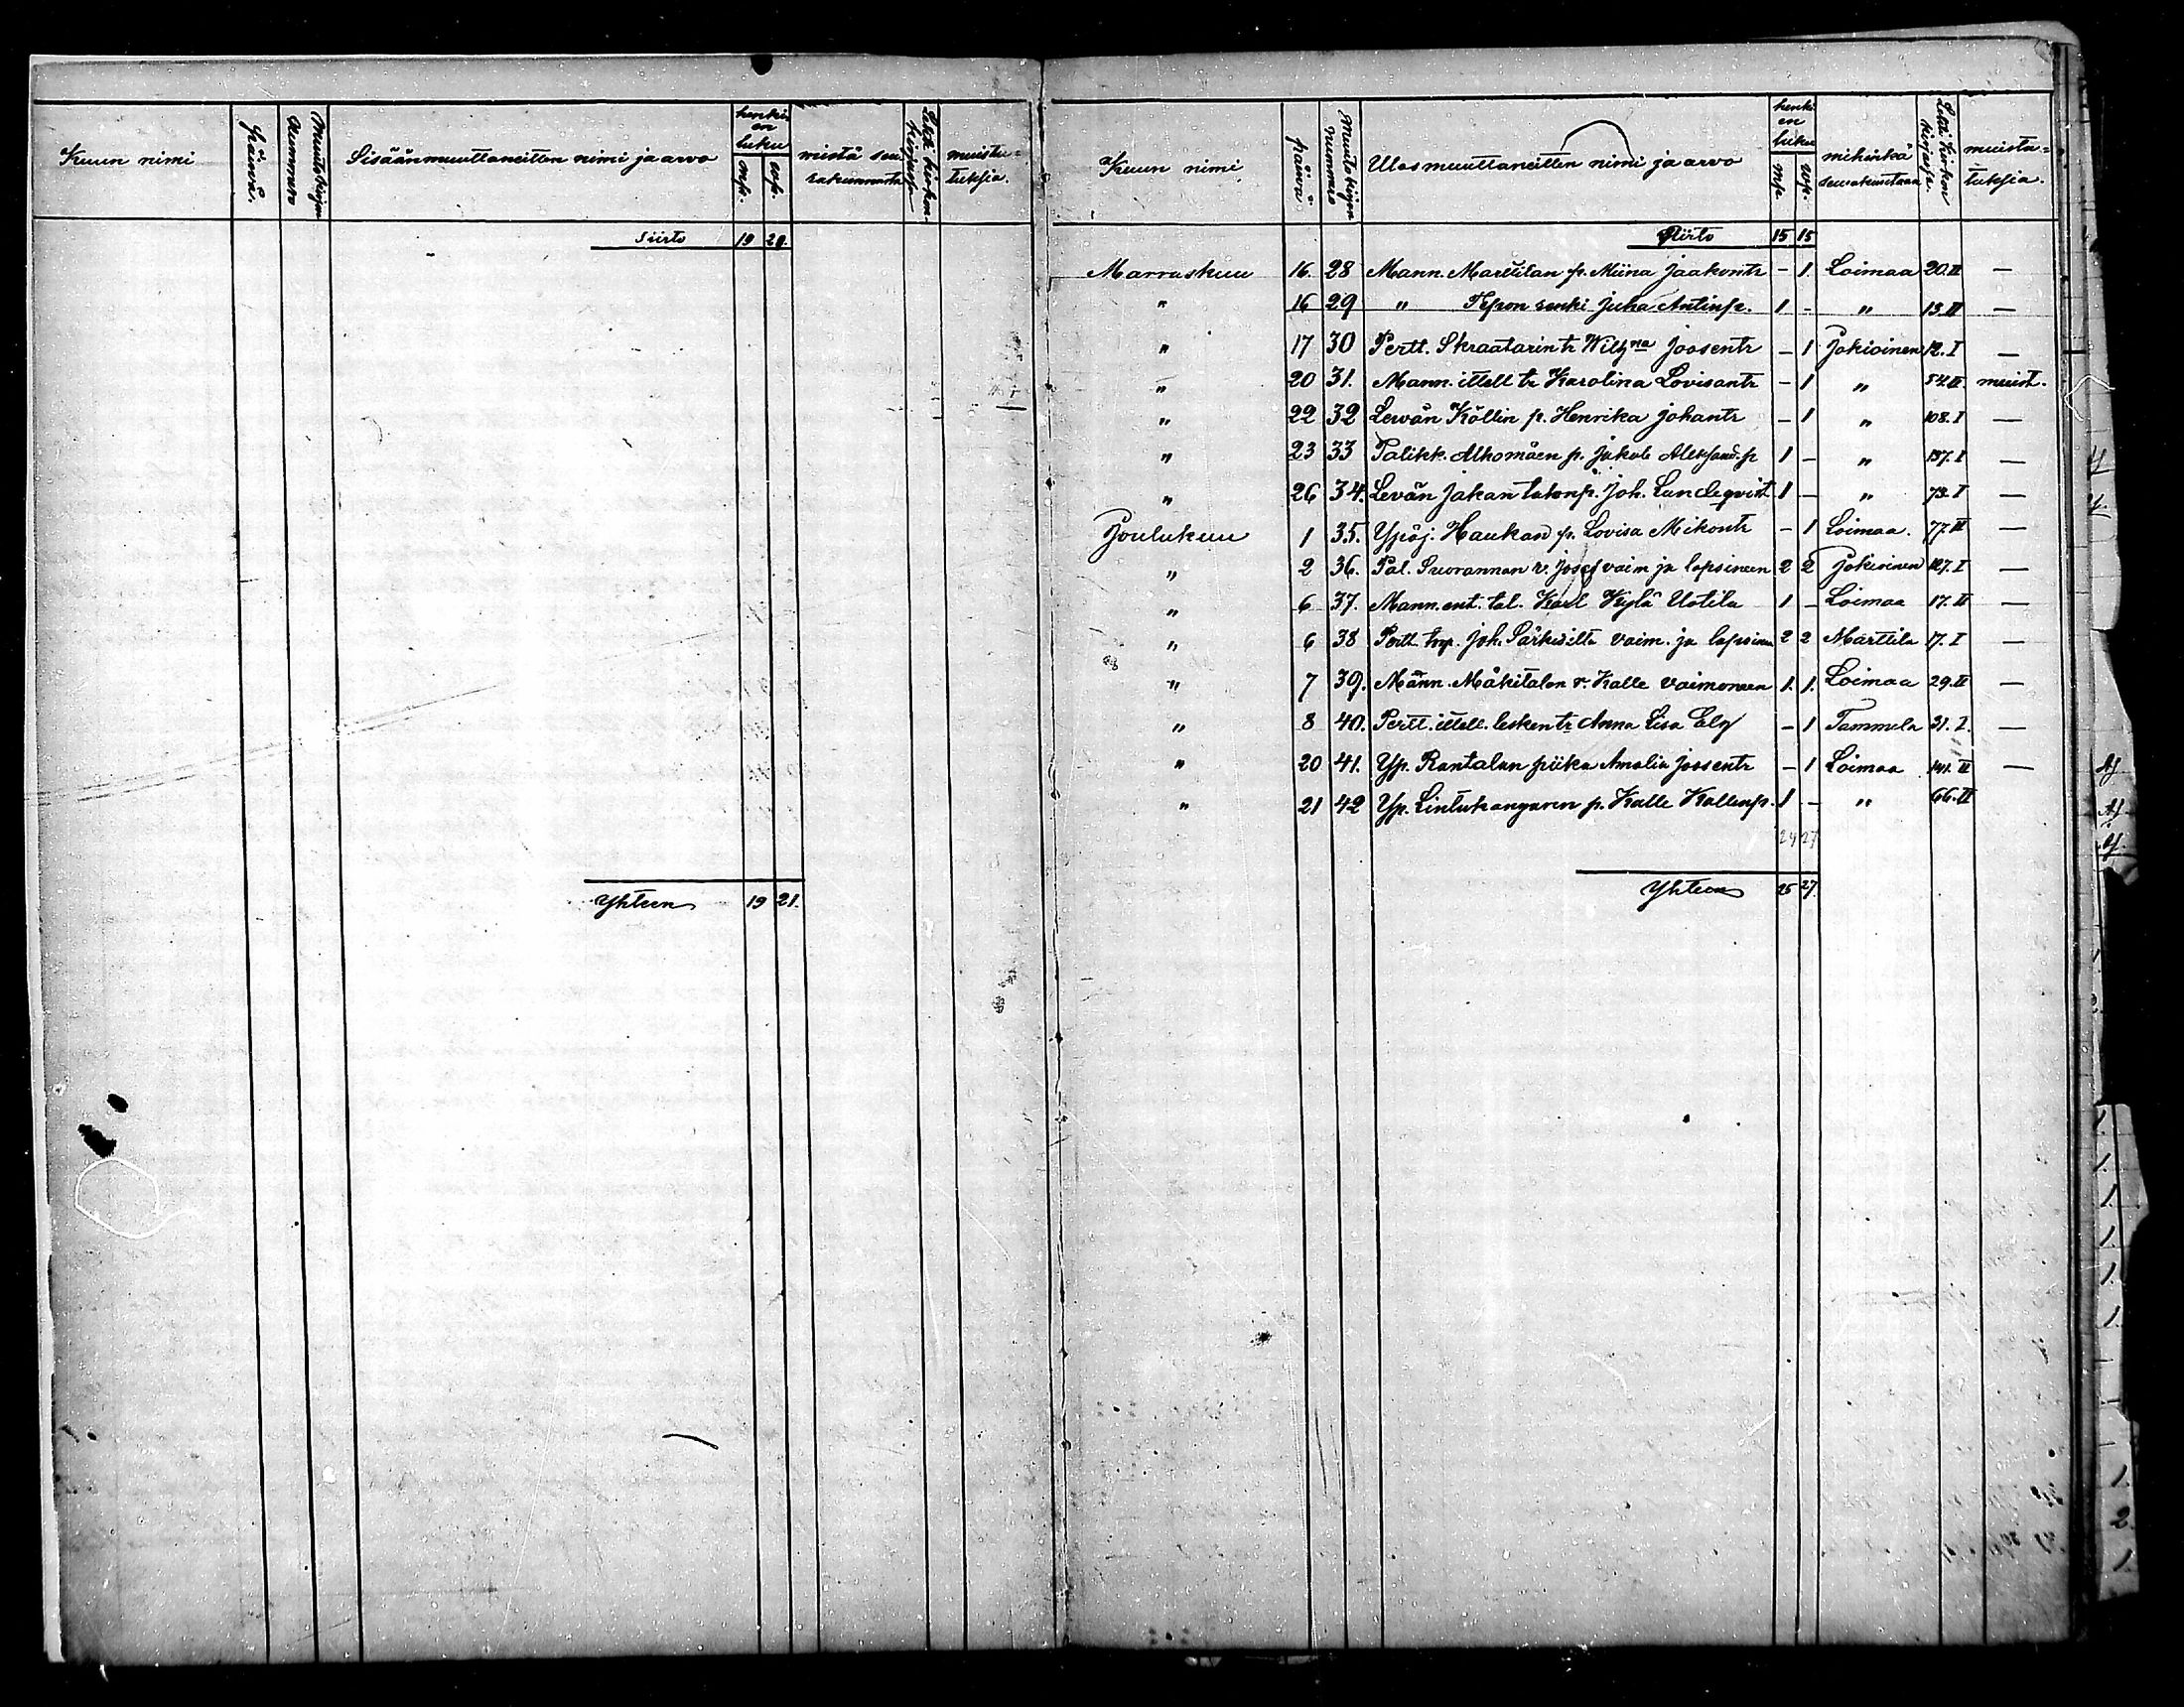 Kuun nimi päivä. Muuttokirjan nummero Sisäänmuuttaneitten nimi ja arvo henki en luku mp. wp. mistä seu rakunnasta Lehti kirkon kirjassa muistu= tuksia.
Siirto 19 21.
Yhteen 19 21.
Kuun nimi päivä Muuttokirjan nummero Ulosmuuttaneitten nimi ja arvo henki en luku mp. wp. mihinkä seurakuntaan Lehti kirkon kirjassa. muistu= tuksia.
Siirto 15 15
Marraskuu 16. 28 Mann. Marttilan p. Miina Jaakontr - 1. Loimaa 20.II —
" 16 29 " Seppon renki Juha Antinp. 1 - " 13.II —
" 17 30 Pertt. Skraatarin tr Wilhna Joosentr - 1 Jokioinen 12.I —
" 20 31. Mann. itell. tr Karolina Lovisantr - 1 " 54.II. muist.
" 22 32 LevänKöllin p. Henrika Johantr - 1 " 108.I —
" 23 33 Palikk. Alhomäen p. Jakob Aleksand.p 1 - " 137.I —
" 26 34. Levän Jakan talonp. Joh. Lundeqvist 1 - " 73.I —
Joulukuu 1 35. Ypäj. Haukan p. Lovisa Mikontr - 1 Loimaa. 77.II —
" 2 36. Pal. Suorannan r. Josef vaim ja lapsineen 2 2 Jokioinen 127.I —
" 6 37. Mann. ent. tal. Karl Kylä Uotila 1 - Loimaa 17.II —
" 6 38 Pertt. trp. Joh. Särkisilta vaim. ja lapsineen 2 2 Marttila 17.I —
" 7 39. Mann. Mäkitalon r. Kalle vaimoneen 1. 1. Loimaa 29.II —
" 8 40. Pertt. itell. lesken tr Anna Lisa Elg - 1 Tammela 31.I. —
" 20 41. Yp. Rantalan piika Amalia Joosentr - 1 Loimaa 141.II —
" 21 42 Yp. Lintukangaren p. Kalle Kallenp. 1 - " 66.II
24 27
Yhteen 25 27.